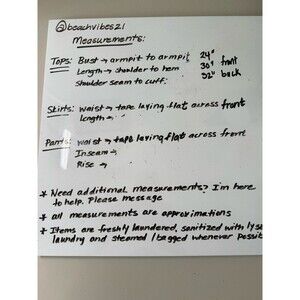 @beachvibes21
Measurements:
Tops: Bust → armpit to armpit 24"
Length → shoulder to hem 30" front
Shoulder seam to cuff: 32" back
Skirts: waist → tape laying flat across front
Length →
Pants: waist → tape laying flat across front
Inseam →
Rise →
* Need additional measurements? I'm here
to help. Please message
* all measurements are approximations
* Items are freshly laundered, sanitized with lyso
laundry and steamed / bagged whenever possib